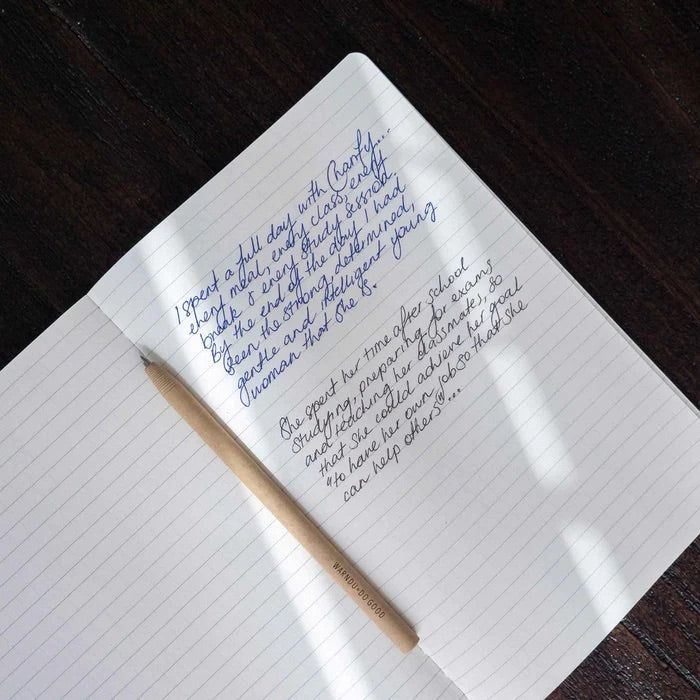 I spent a full day with Charity...
every meal, every class, every
break & every study session.
By the end of the day I had
seen the strong, determined,
gentle and intelligent young
woman that she is.
She spent her time after school
studying, preparing for exams
and teaching her classmates, so
that she could achieve her goal
"to have her own job so that she
can help others"...
WARNDU+DO GOOD